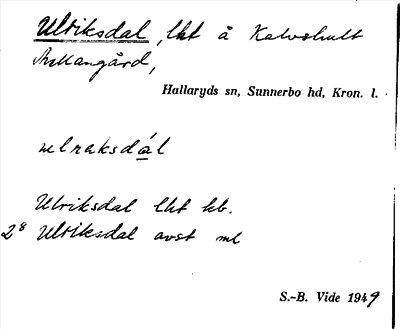 Ulriksdal, lht å Kalvshult
Mellangård,
Hallaryds sn, Sunnerbo hd, Kron. l.
ulraksdál
Ulriksdal lht kb.
2⁸ Ulriksdal avst ml
S.-B. Vide 1949